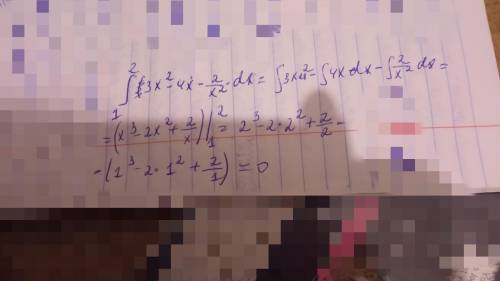 ∫₁² 3x² - 4x - 2/x² · dx = ∫3x² - ∫4x·dx - ∫2/x² dx =
= (x³ - 2x² + 2/x) |₁² = 2³ - 2·2² + 2/2 -
- (1³ - 2·1² + 2/1) = 0